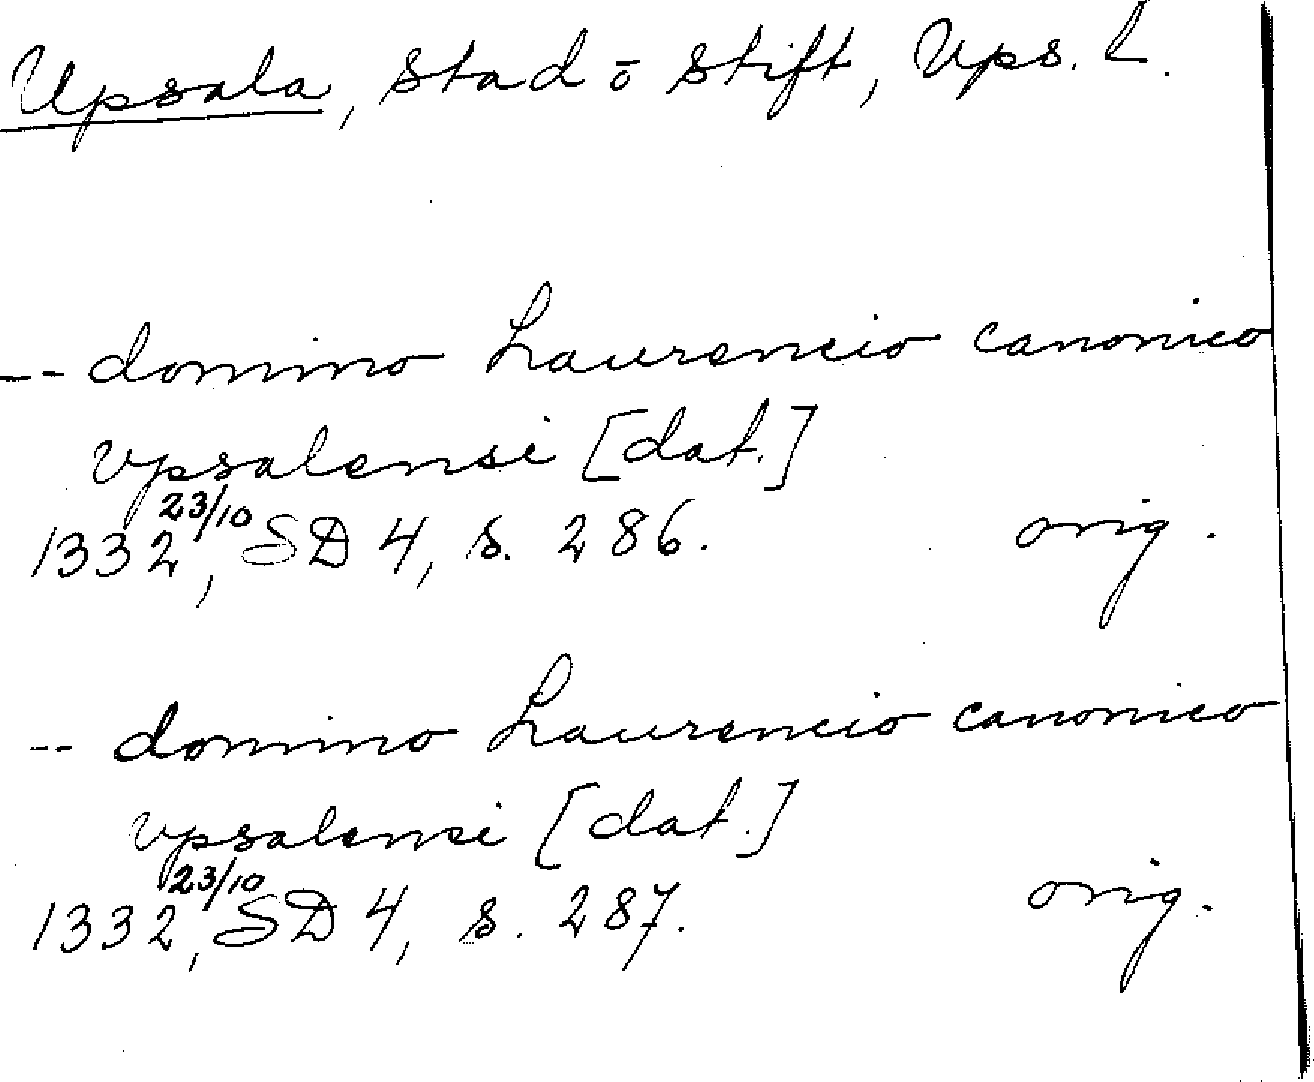 Upsala, stad o stift, Ups. L.
-- domino Laurencio canonico
vpsalensi [dat.]
1332 23/10, SD 4, s. 286. orig.
-- domino Laurencio canonico
vpsalensi [dat.]
1332 23/10, SD 4, s. 287. orig.